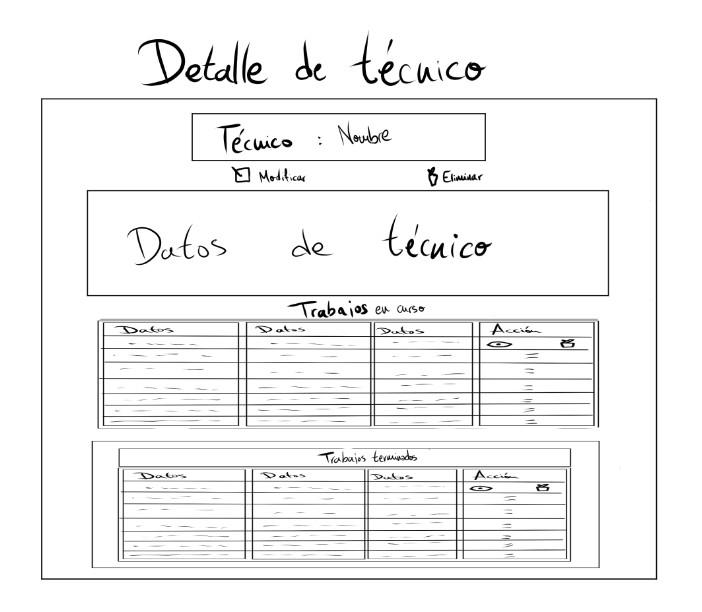 Detalle de técnico
Técnico : Nombre
Modificar Eliminar
Datos de técnico
Trabajos en curso
Datos Datos Datos Acción
Trabajos terminados
Datos Datos Datos Acción